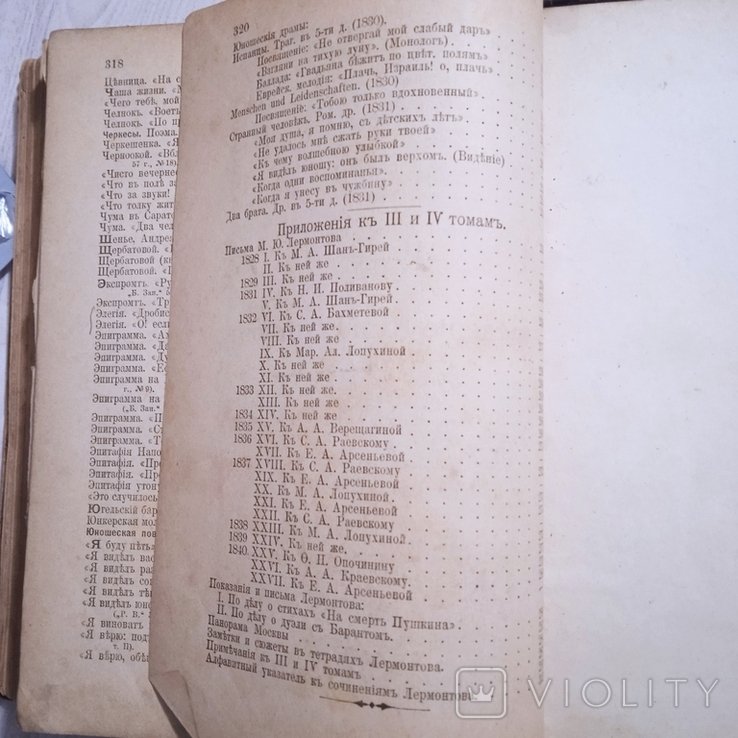 318
Цѣвница. «На с
Чаша жизни. «М
«Чего тебѣ, мой
Челнокъ. «Воетъ
Челнокъ. «По пр
Черкесы. Поэма.
Черкешенка. «Я
Черноокой. «Вбл
57 г., №18).
«Чисто вечернее
«Что въ полѣ за
«Что за звуки!
«Что толку жит
Чума въ Сарато
Чума. «Два чел
Шенье. Андрея
Щербатовой. «
Щербатовой (кн
Щербатовой.
Экспромтъ. «Ру
„Б. Зап.“
Экспромтъ. «Тр
Элегія. «Дробис
Элегія. «О! если
Эпиграмма. «Ам
Эпиграмма. «Да
Эпиграмма. «Ду
Эпиграмма. «Ес
Эпиграмма на
г., №9).
Эпиграмма на
(„Б. Зап.“
Эпиграмма. «П
Эпиграмма. «Ст
Эпиграмма. «То
Эпитафія Напо
Эпитафія. «Про
Эпитафія. «Про
Эпитафія утону
«Это случилось
Югельскій бар
Юнкерская мол
Юношеская пов
«Я буду пѣть
«Я видѣлъ вас
«Я видѣлъ раз
«Я видѣлъ сон
«Я видѣлъ тѣн
«Я видѣлъ юно
(„Р. В.“
«Я виноватъ
«Я вѣрю: подъ
т. II).
«Я вѣрю, обѣ
320
Юношескія драмы:
Испанцы. Траг. въ 5-ти д. (1830).
Посвященіе: «Не отвергай мой слабый даръ»
«Взгляни на тихую луну». (Монологъ).
Баллада: «Гвадьяна бѣжитъ по цвѣт. полямъ»
Еврейск. мелодія: «Плачь, Израиль! о, плачь»
Menschen und Leidenschaften. (1830)
Посвященіе: «Тобою только вдохновенный»
Странный человѣкъ. Ром. др. (1831)
«Моя душа, я помню, съ дѣтскихъ лѣтъ»
«Не удалось мнѣ сжать руки твоей»
«Къ чему волшебною улыбкой»
«Я видѣлъ юношу: онъ былъ верхомъ. (Видѣніе)
«Когда одни воспоминанья»
«Когда я унесу въ чужбину»
Два брата. Др. въ 5-ти д. (1831)
Приложенія къ III и IV томамъ.
Письма М. Ю. Лермонтова
1828 I. Къ М. А. Шанъ-Гирей
II. Къ ней же
1829 III. Къ ней же
1831 IV. Къ Н. И. Поливанову
V. Къ М. А. Шанъ-Гирей
1832 VI. Къ С. А. Бахметевой
VII. Къ ней же.
VIII. Къ ней же
IX. Къ Мар. Ал. Лопухиной
X. Къ ней же
XI. Къ ней же
1833 XII. Къ ней же.
XIII. Къ ней же
1834 XIV. Къ ней же
1835 XV. Къ А. А. Верещагиной
1836 XVI. Къ С. А. Раевскому
XVII. Къ Е. А. Арсеньевой
1837 XVIII. Къ С. А. Раевскому
XIX. Къ Е. А. Арсеньевой
XX. Къ М. А. Лопухиной
XXI. Къ Е. А. Арсеньевой
XXII. Къ С. А. Раевскому
1838 XXIII. Къ М. А. Лопухиной
1839 XXIV. Къ ней же.
1840. XXV. Къ Ѳ. П. Опочинину
XXVI. Къ А. А. Краевскому.
XXVII. Къ Е. А. Арсеньевой
Показанія и письма Лермонтова:
I. По дѣлу о стихахъ «На смерть Пушкина».
II. По дѣлу о дуэли съ Барантомъ.
Панорама Москвы
Замѣтки и сюжеты въ тетрадяхъ Лермонтова.
Примѣчанія къ III и IV томамъ
Алфавитный указатель къ сочиненіямъ Лермонтова
VIOLITY